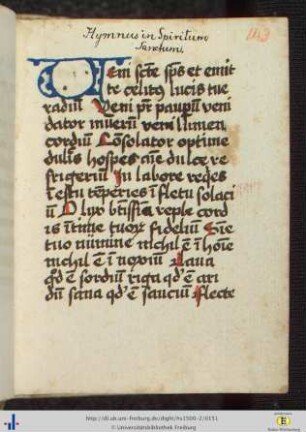 Hymnus in Spiritum
Sanctum.
143
Veni sc̄te sp̄s et emit
te celitus lucis tue
radiū Veni pr̄ paupū veni
dator munerū veni lumen
cordiū Cōsolator optime
dulcis hospes aīe dulce re
frigeriū In labore reqes
ī estu tēperies ī fletu solaci
ū O lux btīssia reple cord
is ītima tuorꝫ fideliū Sine
tuo numine nichil ē ī hoīe
nichil ē ī noxiū Laua
qd̓ ē sordiū riga qd̓ ē ari
dū sana qd̓ ē sauciū flecte
http://dl.ub.uni-freiburg.de/diglit/hs1500-2/0151
© Universitätsbibliothek Freiburg